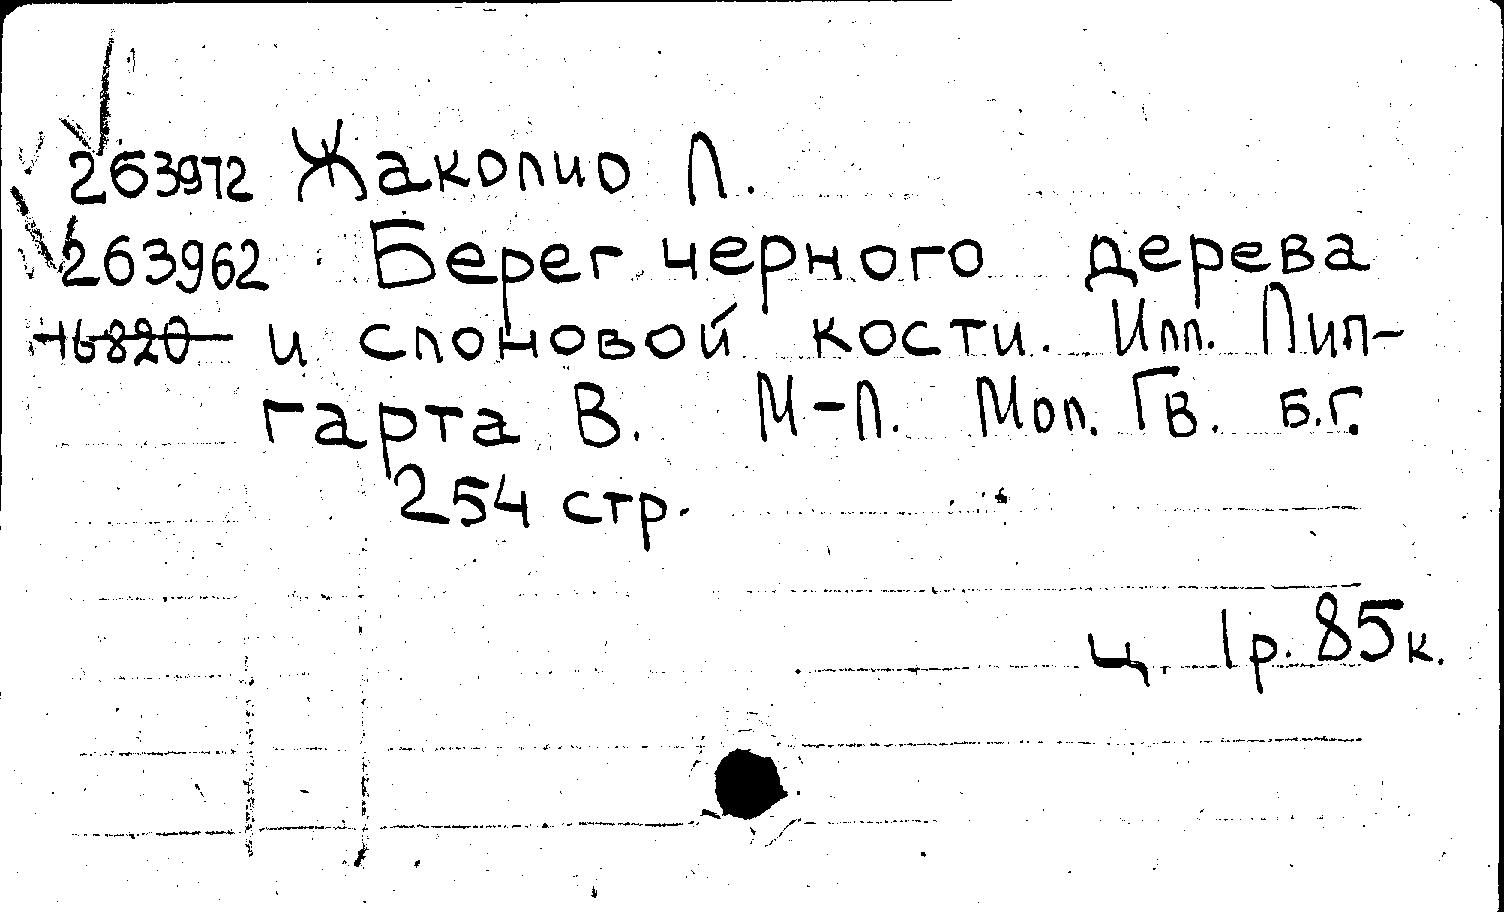 263972 Жаколио Л.
263962 Берег черного дерева
16820 и слоновой кости. Илл. Лип-
гарта В. М-Л. Мол. Гв. б.г.
254 стр.
ц. 1р. 85к.